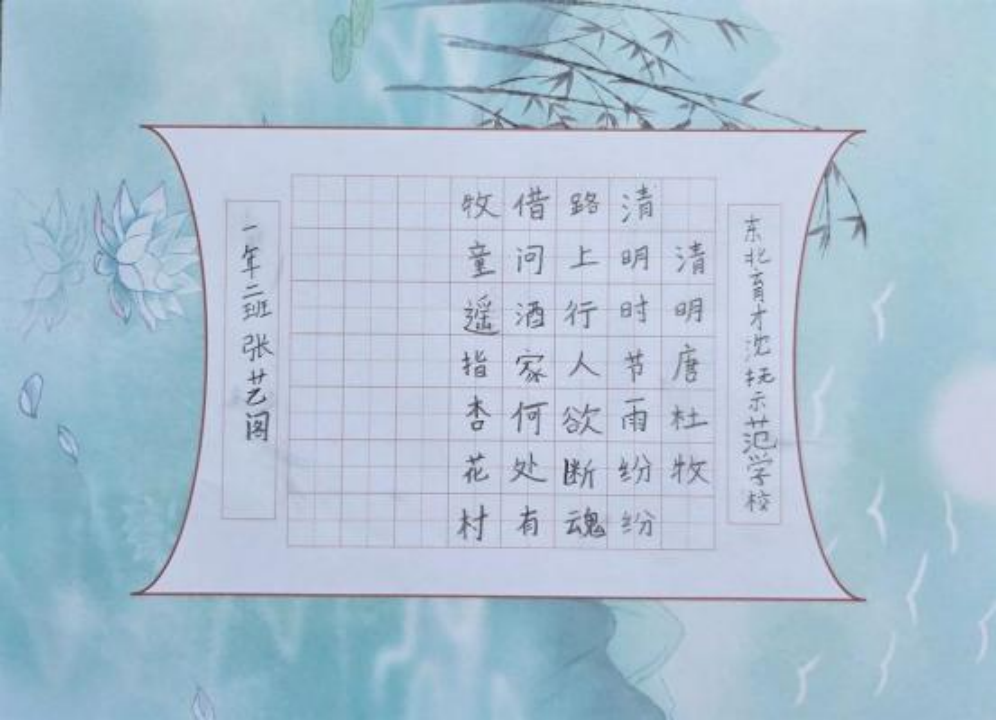 东北育才沈抚示范学校
清明唐杜牧
清明时节雨纷纷
路上行人欲断魂
借问酒家何处有
牧童遥指杏花村
一年二班张艺阁